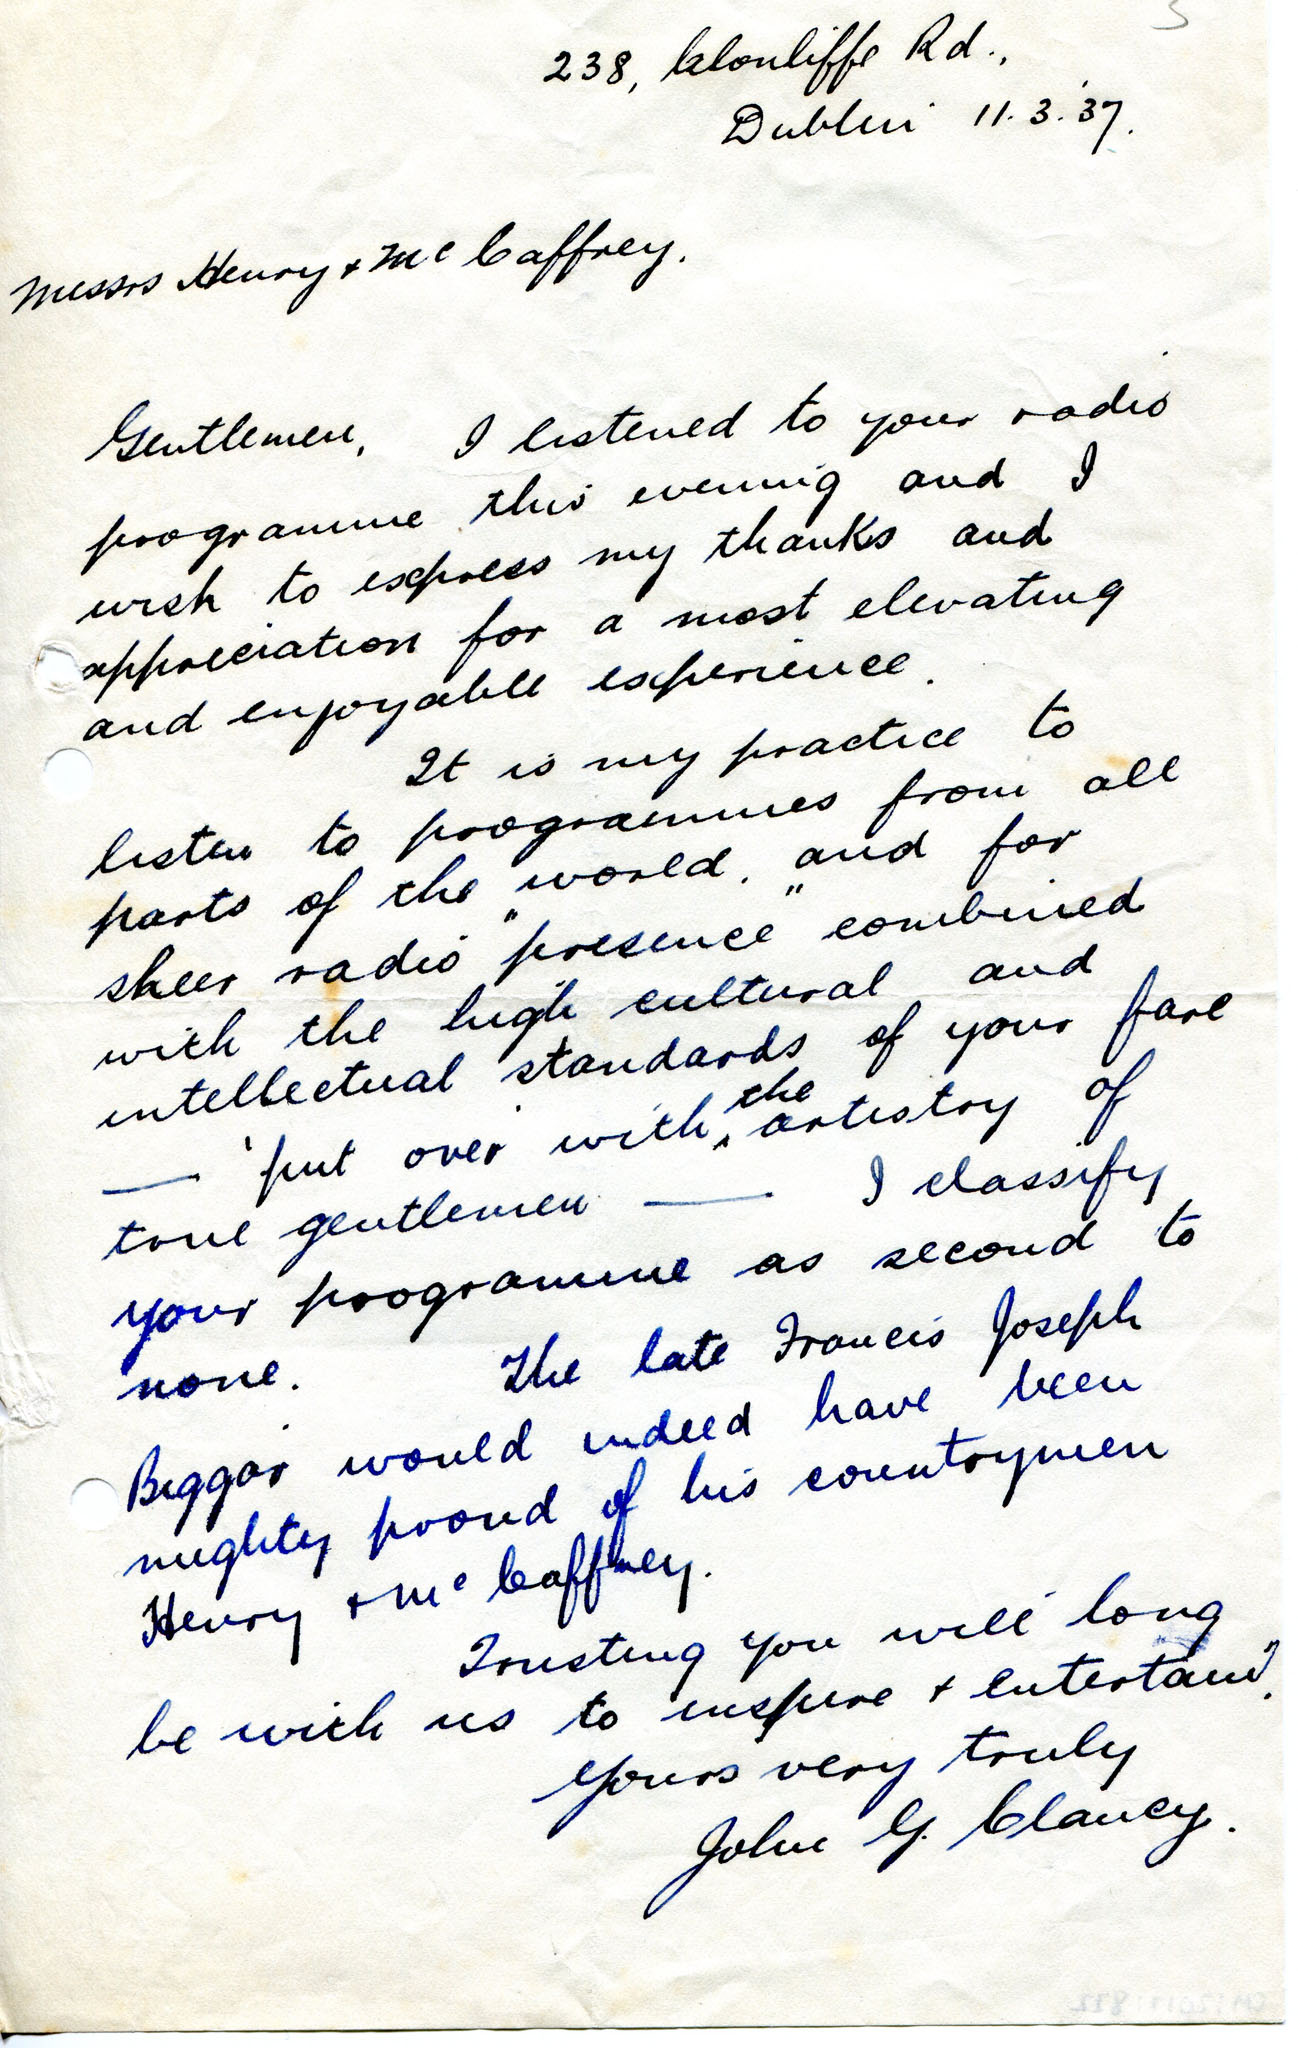 238, Clonliffe Rd.,
Dublin 11.3.37.
Messrs Henry & McCaffrey.
Gentlemen, I listened to your radio
programme this evening and I
wish to express my thanks and
appreciation for a most elevating
and enjoyable experience.
It is my practice to
listen to programmes from all
parts of the world, and for
sheer radio "presence" combined
with the high cultural and
intellectual standards of your fare
— put over with the artistry of
true gentlemen — I classify
your programme as second to
none. The late Francis Joseph
Biggar would indeed have been
mighty proud of his countrymen
Henry & McCaffrey.
Trusting you will long
be with us to inspire & entertain,
Yours very truly
John G. Clancy.